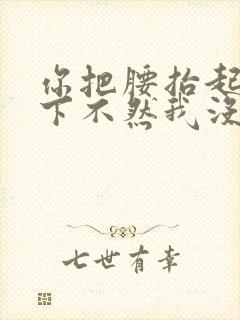 你把腰抬起
下不然我没
七世有幸